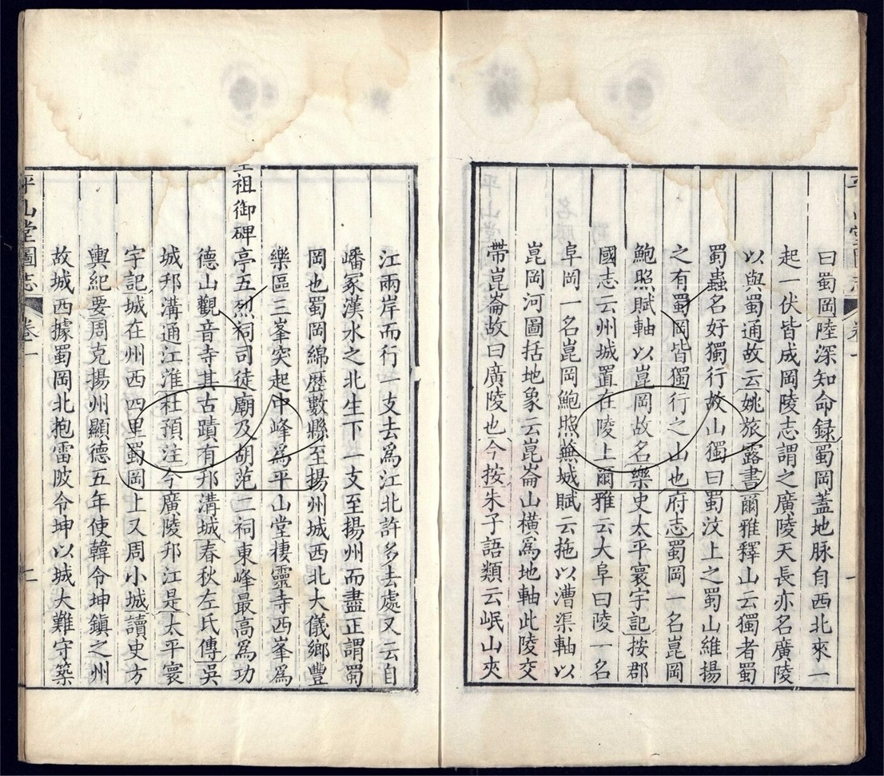 曰蜀岡陸深知命録蜀岡蓋地脉自西北來一
起一伏皆成岡陵志謂之廣陵天長亦名廣陵
以與蜀通故云姚旅露書爾雅釋山云獨者蜀
蜀蟲名好獨行故山獨曰蜀汶上之蜀山維揚
之有蜀岡皆獨行之山也府志蜀岡一名崑岡
鮑照賦軸以崑岡故名樂史太平寰宇記按郡
國志云州城置在陵上爾雅云大阜曰陵一名
阜岡一名崑岡鮑照蕪城賦云拖以漕渠軸以
崑岡河圖括地象云崑崙山橫爲地軸此陵交
帶崑崙故曰廣陵也今按朱子語類云岷山夾
江兩岸而行一支去爲江北許多去處又云自
嶓冢漢水之北生下一支至揚州而盡正謂蜀
岡也蜀岡綿歷數縣至揚州城西北大儀鄉豐
樂區三峯突起中峰爲平山堂棲靈寺西峯爲
祖御碑亭五烈祠司徒廟及胡范二祠東峰最高爲功
德山觀音寺其古蹟有邗溝城春秋左氏傳吳
城邗溝通江淮杜預注今廣陵邗江是太平寰
宇記城在州西四里蜀岡上又周小城讀史方
輿紀要周克揚州顯德五年使韓令坤鎮之州
故城西據蜀岡北抱雷陂令坤以城大難守築
平山堂圖志
卷一
二